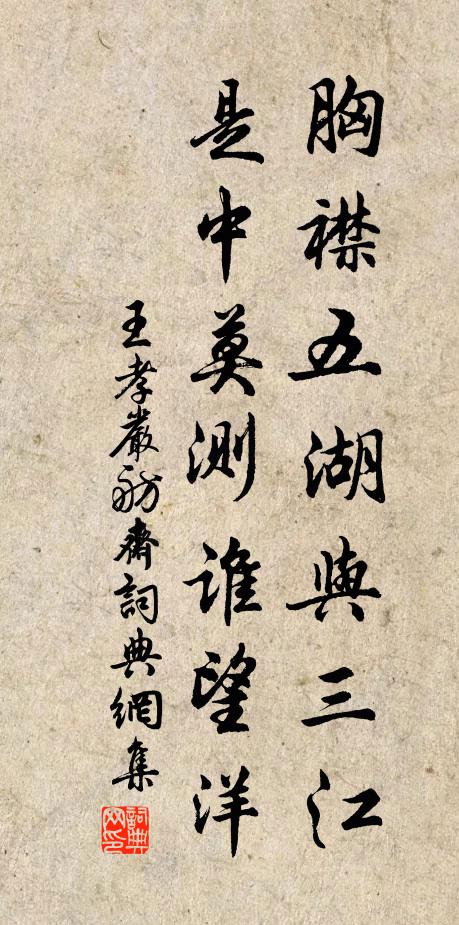 胸襟五湖與三江
是中莫测谁望洋
王孝嚴舫齋詞典網集
詞典网印